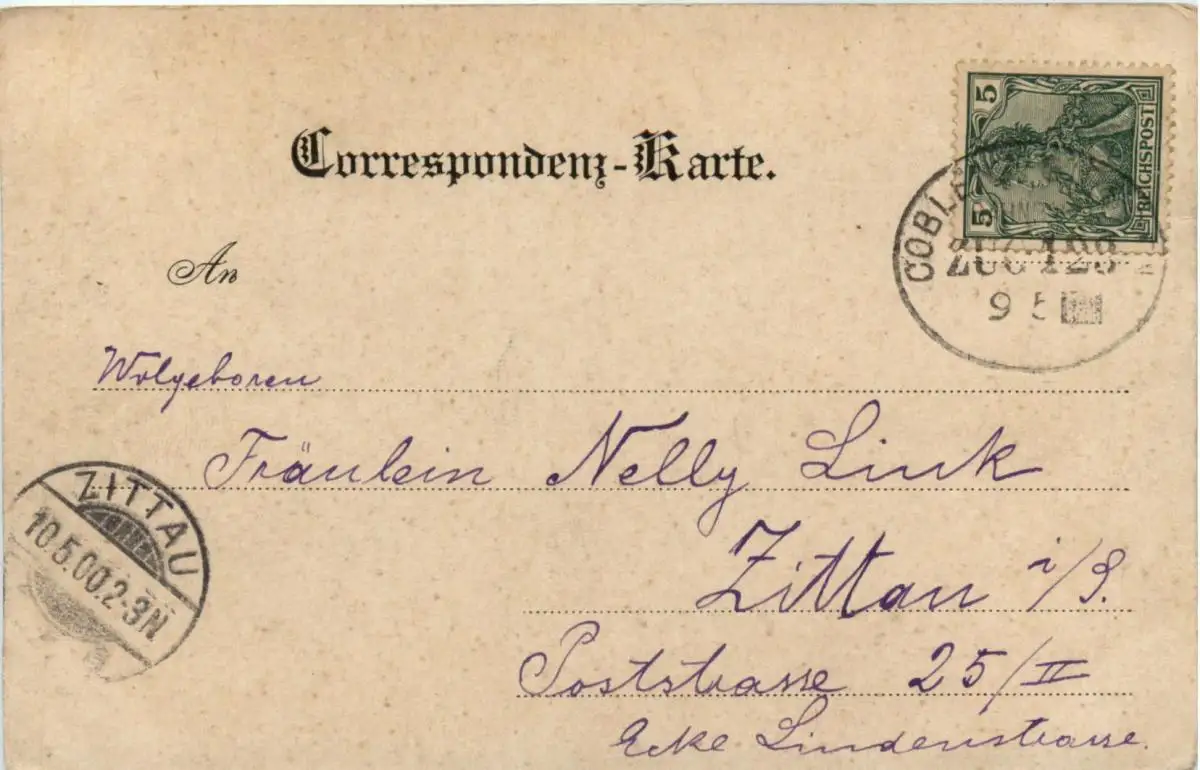 Correspondenz-Karte.
5
5
REICHSPOST
ZUG 123
9 5
An
Wolgeboren
Fräulein Nelly Link
ZITTAU
10.5.00.2-3N
Zittau i/S.
Poststrasse 25/II
Ecke Lindenstrasse.